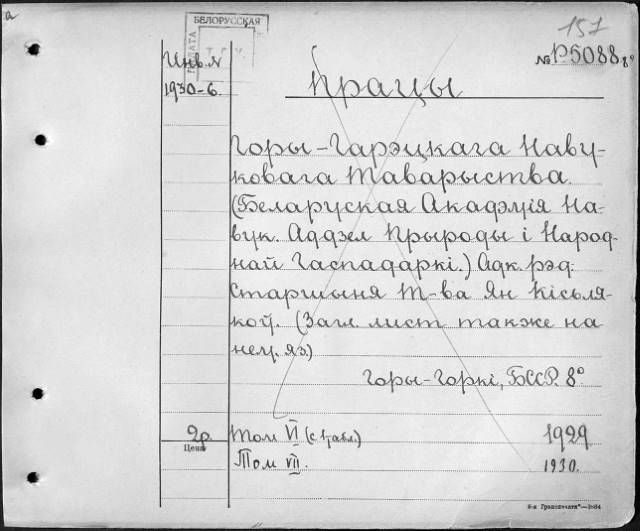 БЕЛОРУССКАЯ
151
Инв. №
№ P5088 8°
1930-6.
Працы
Горы-Гарэцкага Наву-
ковага Таварыства.
(Беларуская Акадэмія На-
вук. Аддзел Прыроды і Народ-
най Гаспадаркі.) Адк. рэд.
Старшыня Т-ва Ян Кісьля-
коў. (Загл. лист также на
нем. яз.)
Горы-Горкі, БССР. 8°
2р. Том VI (с 1 табл.) 1929
Цена
Том VII. 1930.